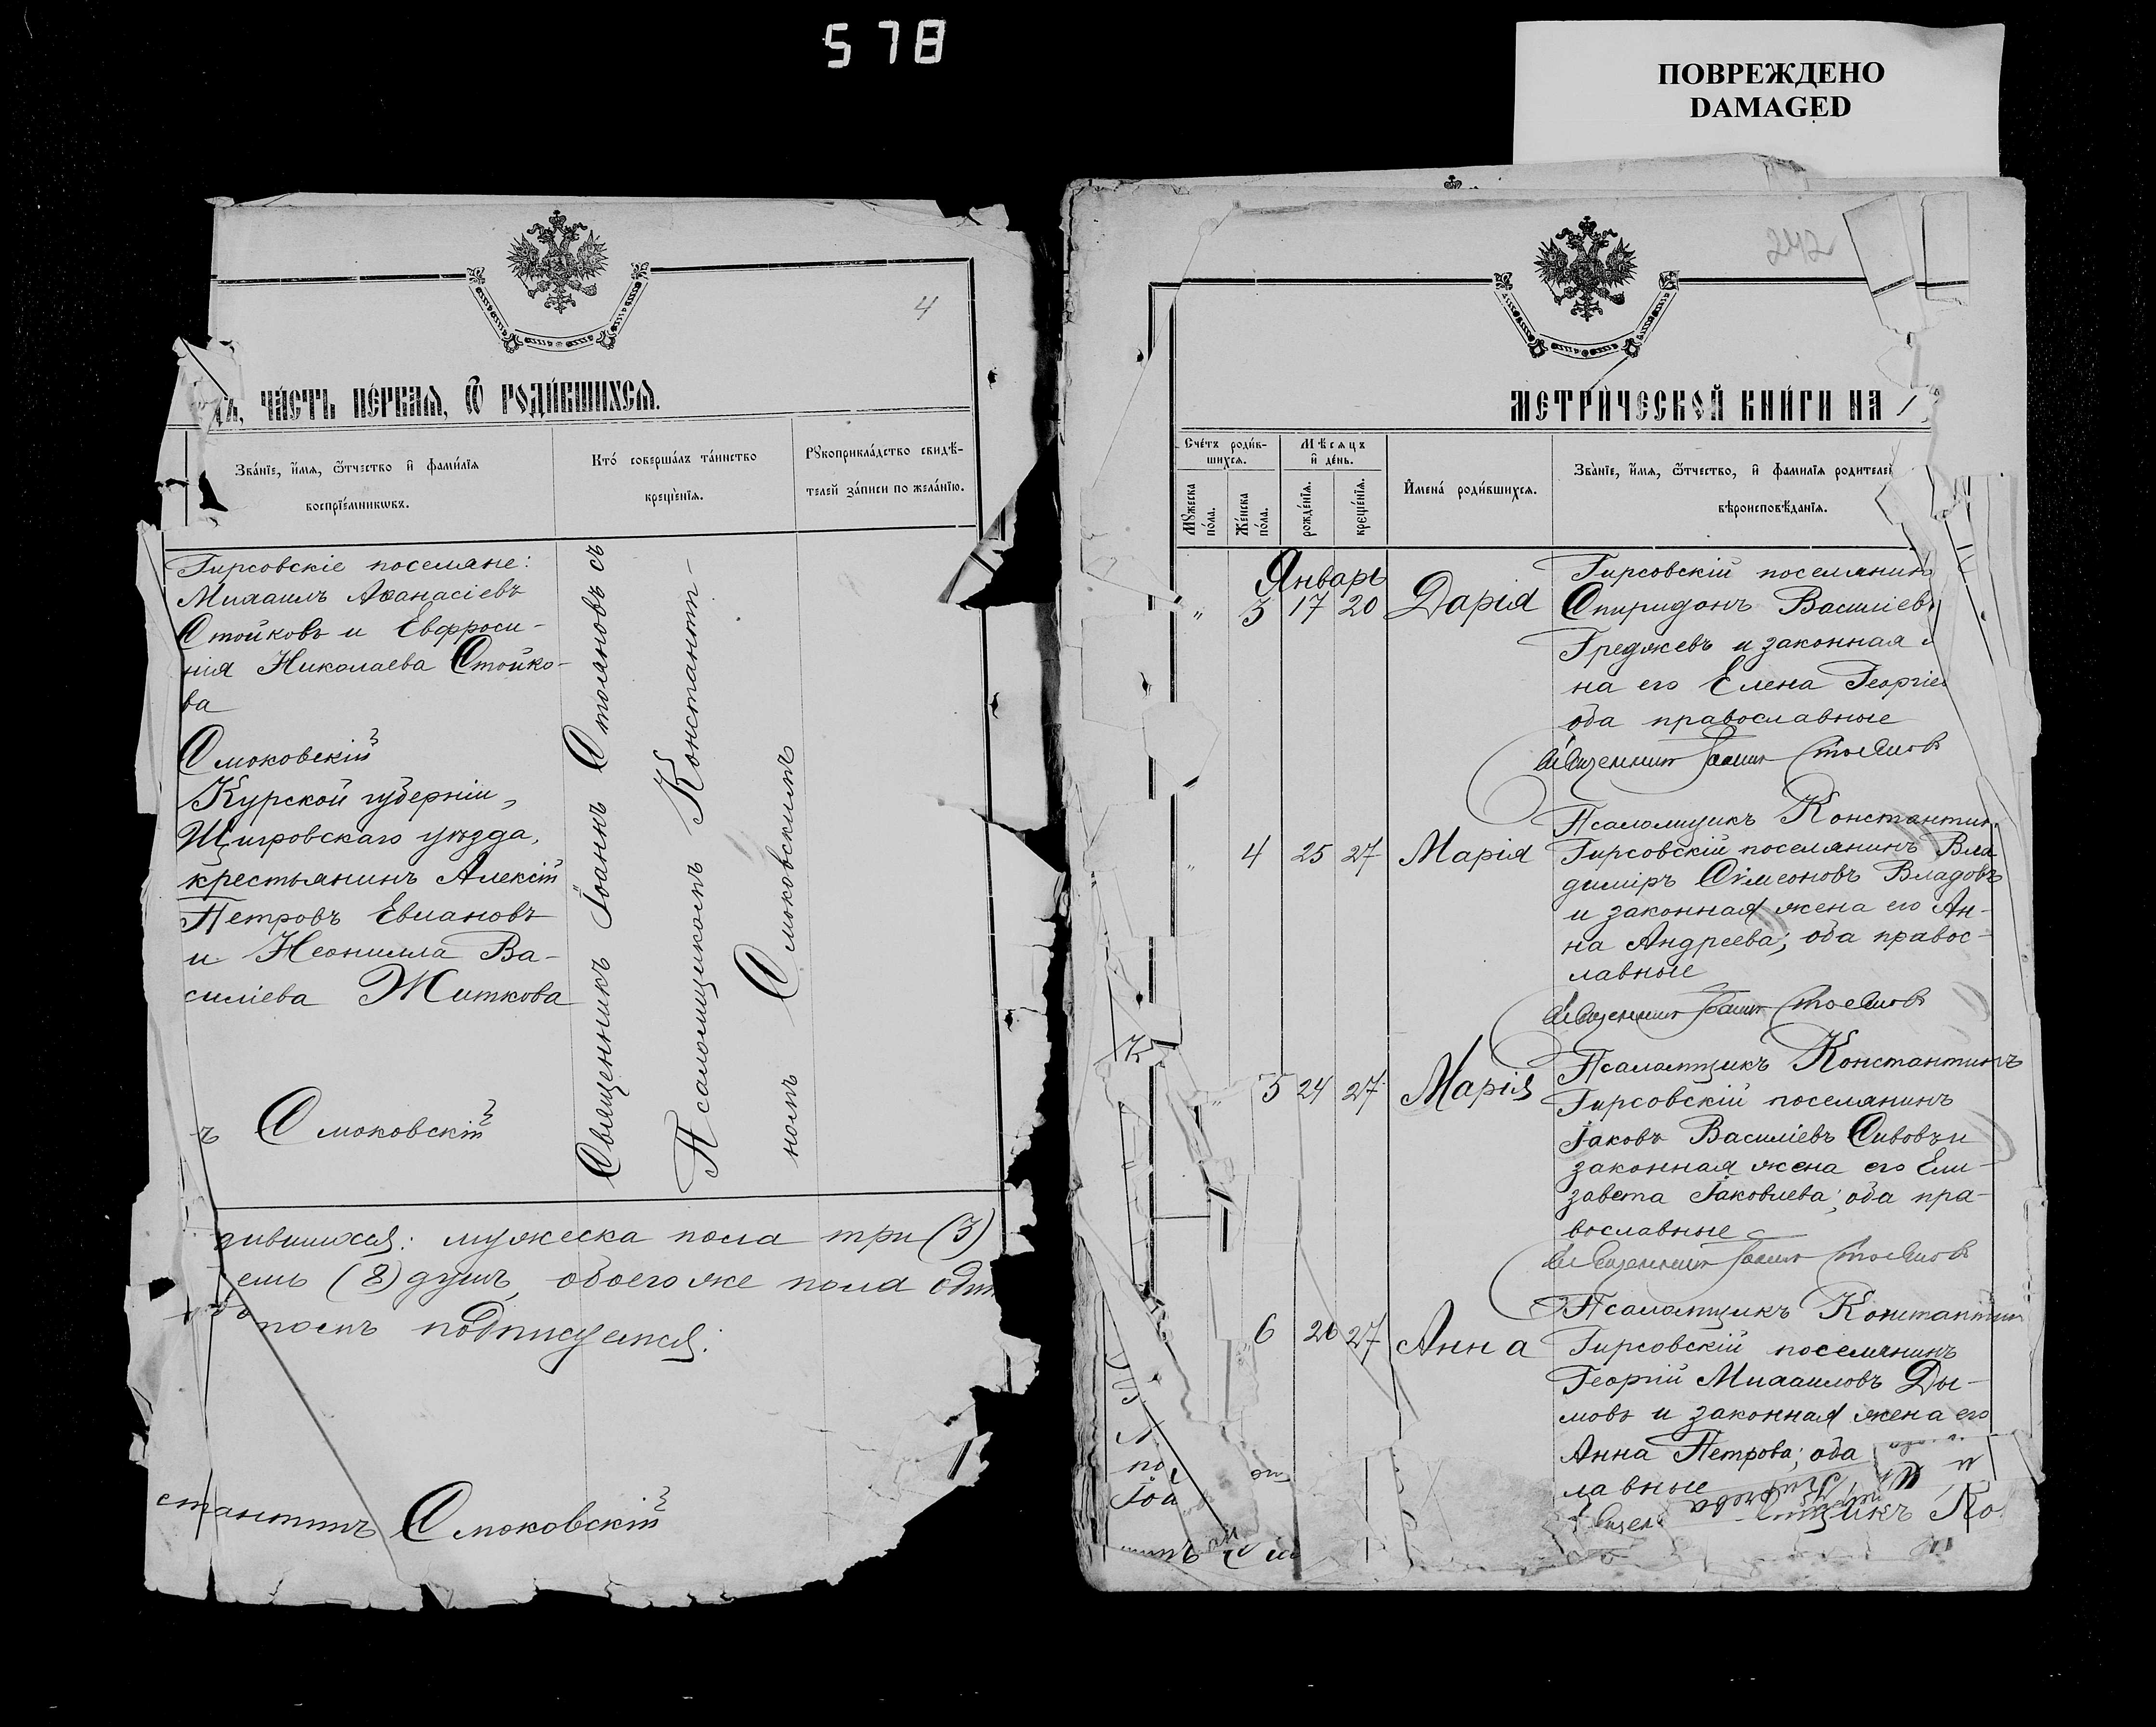 578
ПОВРЕЖДЕНО
DAMAGED
4
ЧА́СТЬ ПЕ́РВАЯ, Ѡ РОДИ́ВШИХСЯ.
Зва́нїе, и́мя, ѻ҆́тчество и҆ фами́лїя
воспрїе́мникѡвъ.
Кто́ соверша́лъ та́инство
креще́нїя.
Рꙋкоприкла́дство свидѣ́-
телей за́писи по жела́нїю.
Гирсовскіе поселяне:
Михаилъ Аѳанасіевъ
Стойковъ и Евфроси-
нія Николаева Стойко-
ва
Смоковскій
Курской губерніи,
Щигровскаго уѣзда,
крестьянинъ Алексій
Петровъ Евлановъ
и Неонилла Ва-
силіева Житкова
ъ Смоковскій
Священникъ Іоаннъ Стояновъ съ
Псаломщикомъ Константи-
номъ Смоковскимъ
дившихся: мужеска пола три (3)
емь (8) душъ, обоего же пола
подписуемся:
стантинъ Смоковскій
242
МЕТРИ́ЧЕСКОЙ КНИ́ГИ НА 1
Сче́тъ роди́в-
шихся.
Мѣ́сяцъ
и҆ де́нь.
Мꙋ́жеска
по́ла.
Же́нска
по́ла.
рожде́нїя.
креще́нїя.
И҆мена́ роди́вшихся.
Зва́нїе, и́мя, ѻ҆́тчество, и҆ фами́лїя родителей
вѣроисповѣ́данїя.
Январь
„ 3 17 20 Дарія
Гирсовскій поселянинъ
Спиридонъ Василіевъ
Греджевъ и законная
на его Елена Георгіе
оба православные
Священникъ Іоаннъ Стояновъ
Псаломщикъ Константин
„ 4 25 27 Марія
Гирсовскій поселянинъ Вла
диміръ Симеоновъ Владовъ
и законная жена его Ан-
на Андреева; оба правос-
лавные
Священникъ Іоаннъ Стояновъ
Псаломщикъ Константинъ
„ 5 24 27 Марія
Гирсовскій поселянинъ
Іаковъ Василіевъ Сивовъ и
законная жена его Ели-
завета Іаковлева; оба пра-
вославные
Священникъ Іоаннъ Стояновъ
Псаломщикъ Константин
„ 6 26 27 Анна
Гирсовскій поселянинъ
Георгій Михаиловъ Ды-
мовъ и законная жена его
Анна Петрова; оба
лавные
щикъ Ко